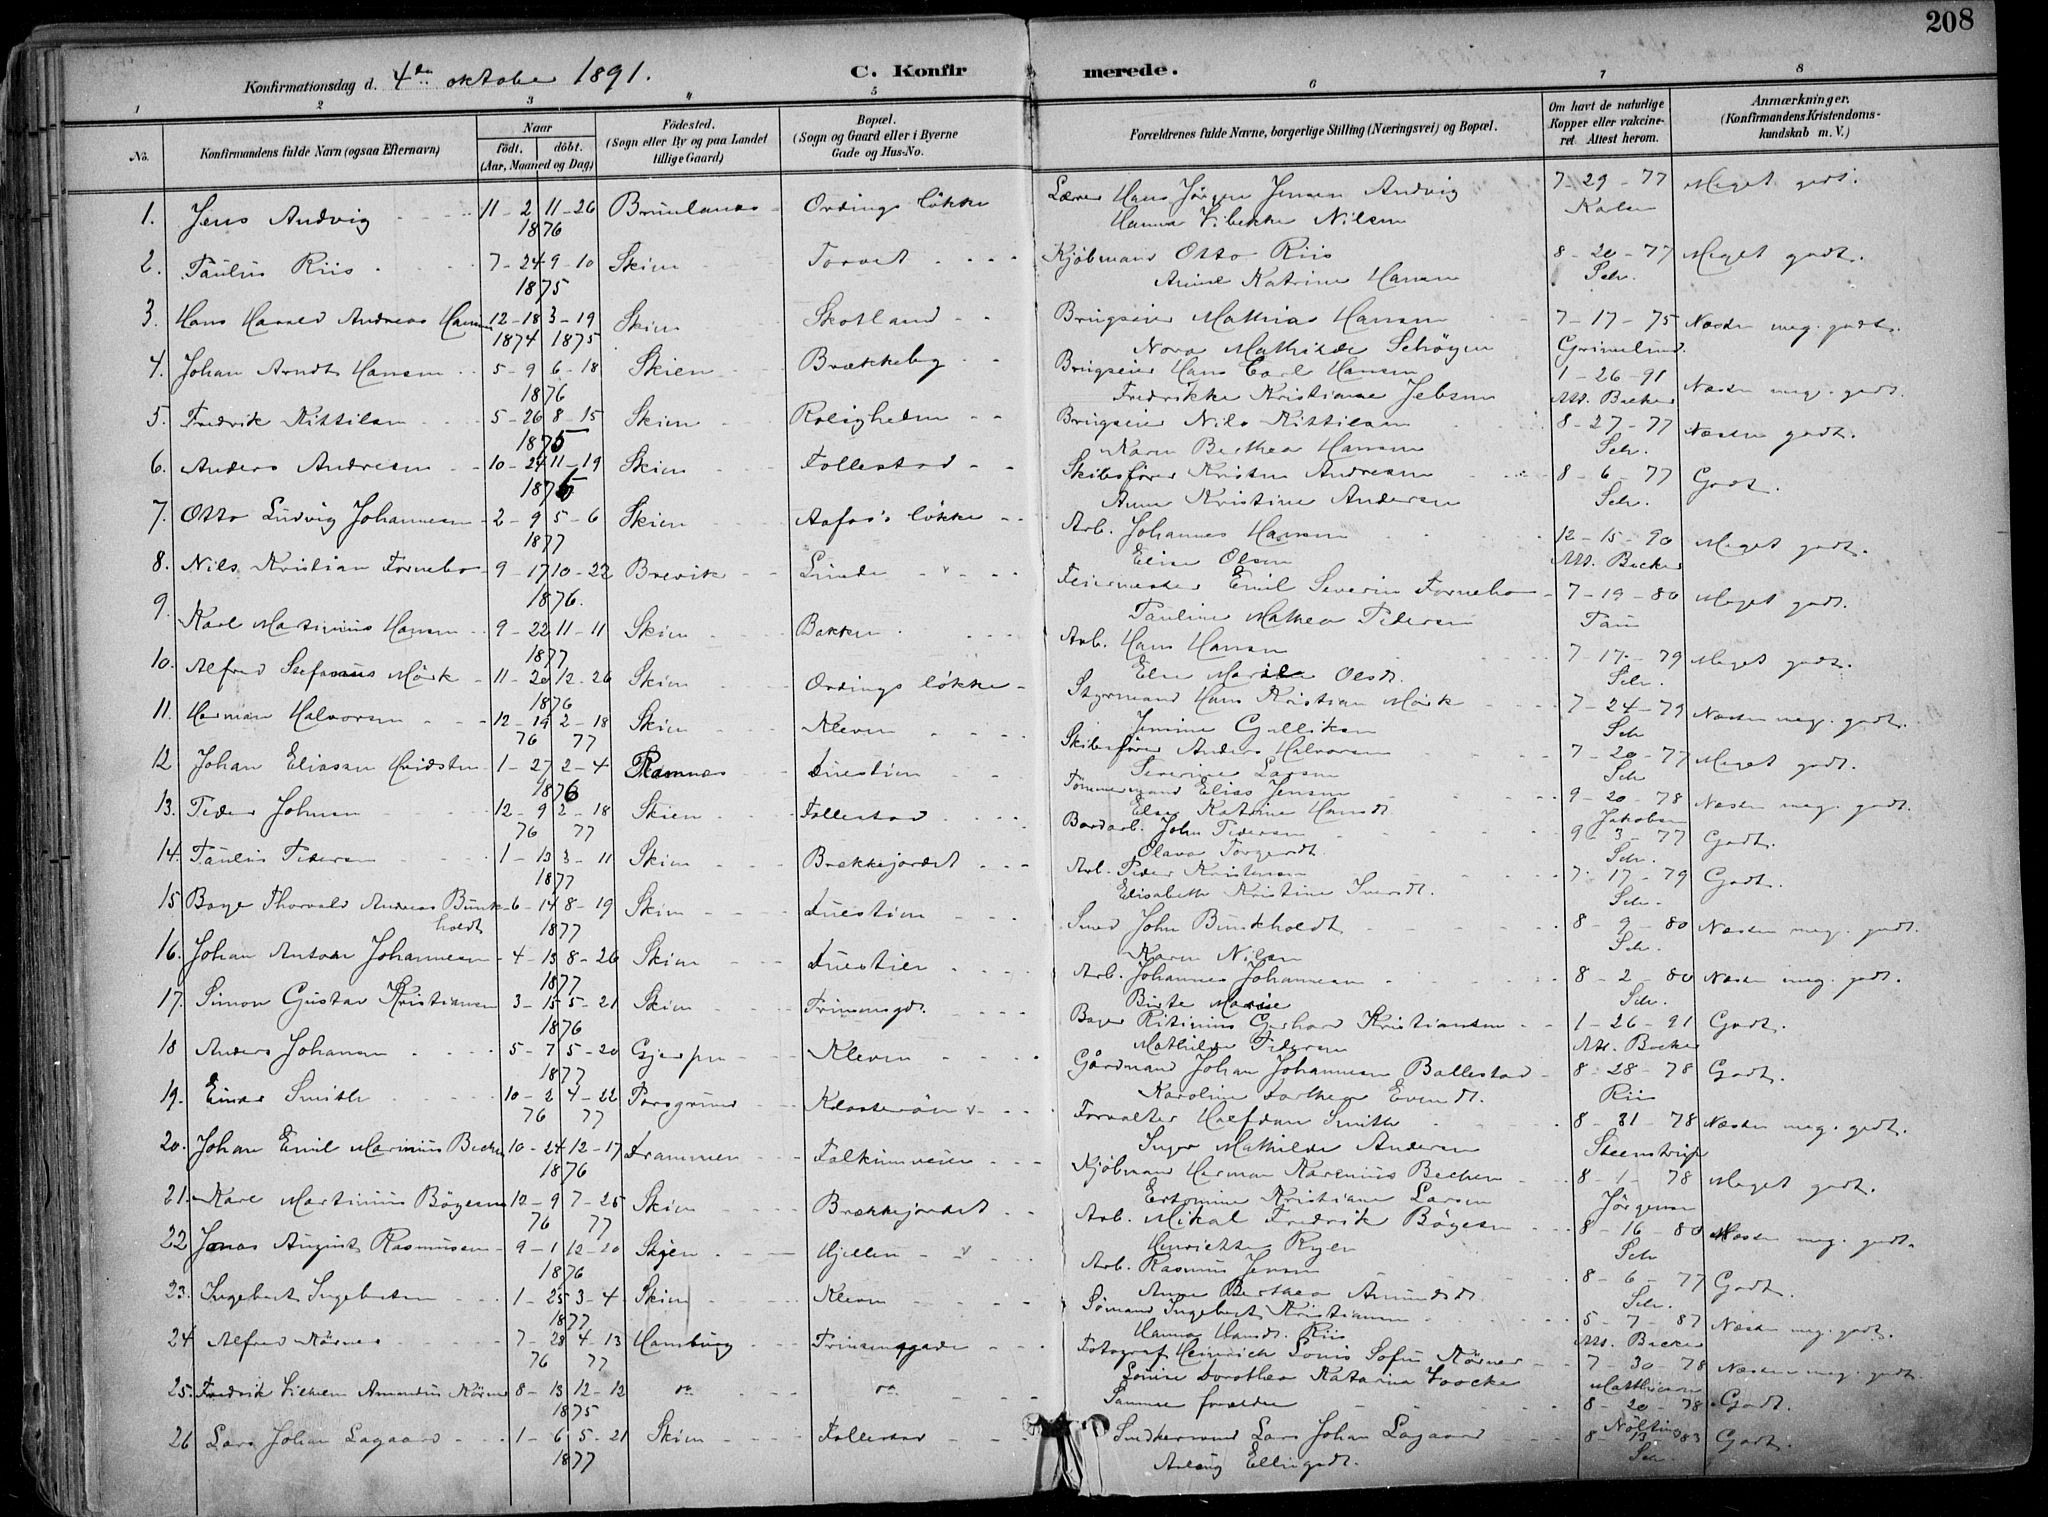 208
Konfirmationsdag d. 4de oktober 1891.
C. Konfirmerede.
1 2 3 4 5 6 7 8
No. Konfirmandens fulde Navn (ogsaa Efternavn) Naar födt. döbt. (Aar, Maaned og Dag) Födested. (Sogn eller By og paa Landet tillige Gaard) Bopæl. (Sogn og Gaard eller i Byerne Gade og Hus-No. Forældrenes fulde Navne, borgerlige Stilling (Næringsvei) og Bopæl. Om havt de naturlige Kopper eller vakcineret. Attest herom. Anmærkninger. (Konfirmandens Kristendomskundskab m. V.)
1. Jens Andvig 11-2 11-26 1876 Brunlanæs Ordings løkke Lærer Hans Jörgen Jensen Andvig 7-29-77 Meget godt.
Hanna Vibekke Nilsen
2. Paulus Riis 7-24 9-10 1875 Skien Torvet Kjøbmand Otto Riis 8-20-77 Meget godt.
Anne Katrine Hansen Sch.
3. Hans Harald Andreas Hansen 12-18 1874 3-19 1875 Skien Skotland Brugseier Mathias Hansen 7-17-75 Næsten meg. godt.
Nora Mathilde Schögen Grimelund
4. Johan Arndt Hansen 5-9 6-18 1876 Skien Brækkeby Brugseier Hans Carl Hansen 1-26-91 Næsten meg. godt.
Fredrikke Kristiane Jebsen M. Backer
5. Fredrik Kittilsen 5-26 8-15 1875 Skien Roligheden Brugseier Nils Kittilsen 8-27-77 Næsten godt.
Karen Berthea Hansen Sch.
6. Anders Andresen 10-24 11-19 1876 Skien Follestad Skibsfører Kristen Andresen 8-6-77 Godt.
Anne Kristine Andersen Sch.
7. Otto Ludvig Johannesen 2-9 5-6 1877 Skien Aafos's løkke Arb. Johannes Hansen 12-15-90 Meget godt.
Elise Olsen M. Backer
8. Nils Kristian Fornebo 9-17 10-22 1876. Brevik Lunde Feiermester Emil Severin Fornebo 7-19-80 Meget godt.
Pauline Mathea Pedersen
9. Karl Martinius Hansen 9-22 11-11 1877 Skien Bakken Arb. Hans Hansen 7-17-79 Meget godt.
Else Maria Olsdt. Sch.
10. Alfred Stefanus Mörk 11-20 12-26 1876 Skien Ordings løkke Styrmand Hans Kristian Mörk 7-24-79 Næsten meg. godt.
Jensine Gulliksen Sch
11. Herman Halvorsen 12-19 76 2-18 77 Skien Kleven Skibsfører Anders Halvorsen 7-20-77 Meget godt.
Severine Larsen Sch
12 Johan Eliassen Hvidsten 1-27 2-4 1876 Ramnæs Duestien Tömmermand Elias Jensen 9-20-78 Næsten meg. godt.
Else Katrine Hansdt. Jakobsen
13. Peder Johnsen 12-9 76 2-18 77 Skien Follestad Bordarb. John Pedersen 9-3-77 Godt.
Olava Torgersdt. Sch.
14. Paulus Pedersen 1-13 3-11 1877 Skien Brekkejordet Arb. Peder Kristensen 7-17-79 Godt.
Elisabeth Kristine Ivarsdt. Sch.
15 Boye Thorvald Andreas Bunkholdt 6-14 8-19 1877 Skien Duestien Smed John Bunkholdt 8-9-80 Næsten meg. godt.
Karen Nilsen Sch.
16. Johan Anton Johannesen 4-13 8-26 1877 Skien Duestien Arb. Johannes Johannesen 8-2-80 Næsten meg. godt.
Birte Marie Sch.
17. Simon Gustav Kristiansen 3-15 5-21 1876 Skien Prinsensgd. Bager Ritinius Gerhard Kristiansen 1-26-91 Godt.
Mathilde Pedersen M. Backer
18 Anders Johansen 5-7 5-20 1877 Gjerpen Kleven Gårdmand Johan Johannesen Ballestad 8-28-78 Godt.
Karoline Dorthea Evensdt. Riis
19. Einar Smith 10-2 76 4-22 77 Porsgrund Klosterøen Forvalter Halfdan Smith 8-31-78 Næsten meg. godt.
Inga Mathilde Andersen Steenstrup
20. Johan Emil Marinius Bechen 10-24 12-17 1876 Drammen Falkumveien Kjöbmand Herman Karenius Bechen 8-1-78 Meget godt.
Kristiane Larsen Jörgensen
21. Karl Martinius Bögesen 12-9 76 7-25 77 Skien Brækkejordet Arb. Mikal Fredrik Bögesen 8-16-80 Næsten meg. godt.
Henriette Ryen Sch
22 Jonas August Rasmussen 9-1 12-10 1876 Skien Hjellen Arb. Rasmus Jensen 8-6-77 Godt.
Anne Berthea Amundsdt. Sch.
23. Ingebert Ingebertsen 1-25 3-4 1877 Skien Kleven Sömand Ingebert Kristiansen 5-7-87 Næsten meg. godt.
Hanna Hansdt. Riis M. Backer
24 Alfred Körner 7-28 76 4-13 77 Hamburg Prinsensgade Fotograf Heinrich Louis Sofus Körner 7-30-78 Næsten meg. godt.
Louise Dorothea Katarina Matthiesen
25. Fredrik Vilhelm Amandus Körner 8-13 12-12 1875 do do Samme forældre 8-20-78 Godt.
Nölting
26 Lars Johan Lagaard 1-6 5-21 1877 Skien Follestad Snekkersvend Lars Johan Lagaard 8-13-83 Godt.
Aslaug Ellingsdt. Sch.